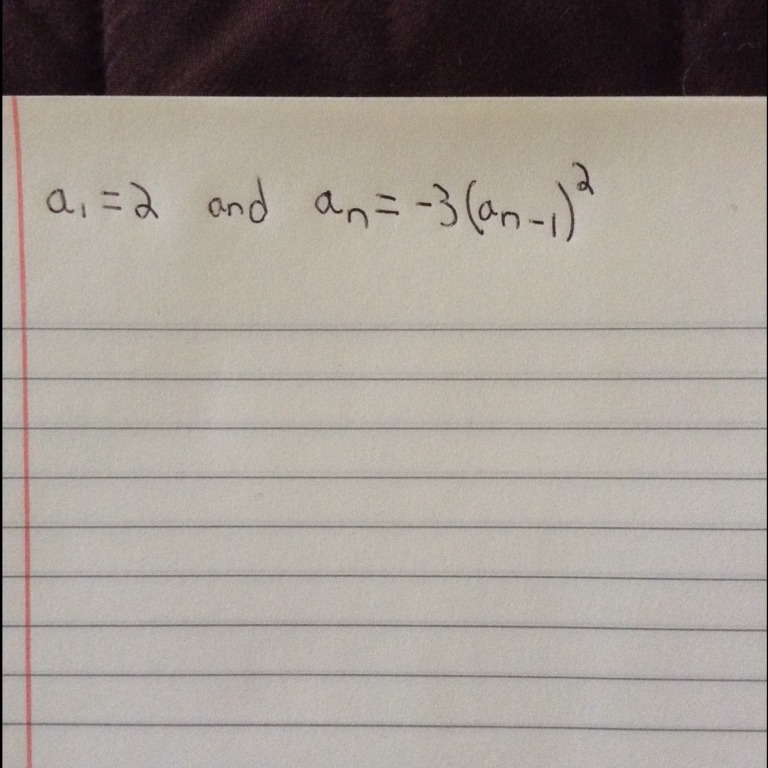 a₁ = 2 and aₙ = -3(aₙ₋₁)²